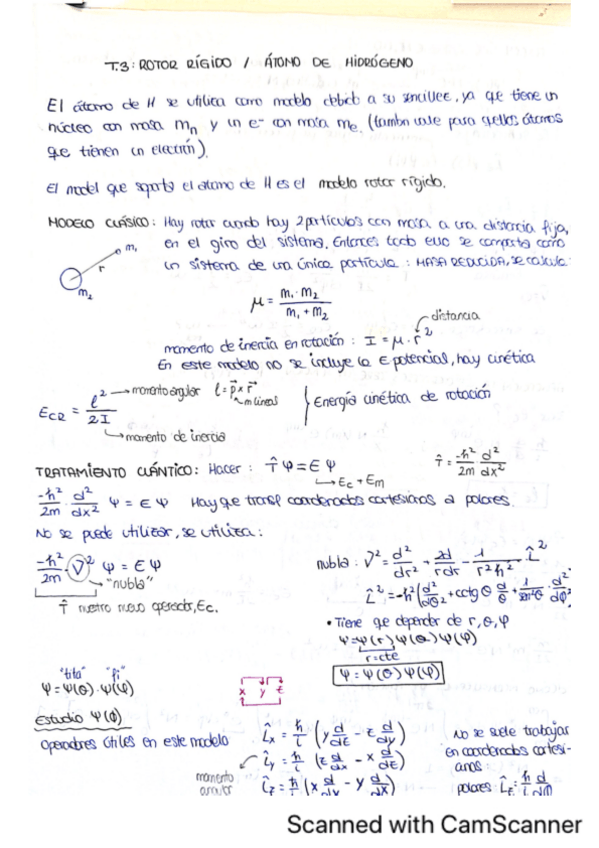 T.3: ROTOR RÍGIDO / ÁTOMO DE HIDRÓGENO
El átomo de H se utiliza como modelo debido a su sencillez, ya que tiene un
núcleo con masa mn y un e- con masa me. (también vale para aquellos átomos
que tienen un electrón).
El model que soporta el átomo de H es el modelo rotor rígido.
MODELO CLÁSICO: Hay rotor cuando hay 2 partículas con masa, a una distancia fija,
en el giro del sistema. Entonces todo eso se comporta como
un sistema de una única partícula: MASA REDUCIDA, se calcula:
m1
r
m2
μ = m1·m2 / m1+m2
distancia
momento de inercia en rotación: I = μ·r²
En este modelo no se incluye la E potencial, hay cinética
E_CR = l² / 2I
momento angular l = p⃗ x r⃗
m lineal
momento de inercia
Energía cinética de rotación
TRATAMIENTO CUÁNTICO: Hacer: T̂ψ = Eψ
Ec + Em
T̂ = -ħ²/2m d²/dx²
-ħ²/2m · d²/dx² ψ = Eψ Hay que transf coordenadas cartesianas a polares.
No se puede utilizar, se utiliza:
-ħ²/2m · ∇² ψ = Eψ
"nubla"
T̂ nuestro nuevo operador, Ec.
nubla: ∇² = d²/dr² + 2d/rdr - 1/r²ħ² · L̂²
L̂² = -ħ² (d²/dθ² + cotg θ d/θ + 1/sin²θ · d²/dϕ²
• Tiene que depender de r, θ, φ
ψ = ψ(r) ψ(θ) ψ(φ)
r = cte
ψ = ψ(θ) ψ(φ)
"tita" "fi"
ψ = ψ(θ) · ψ(φ)
x y z
Estudio ψ(ϕ)
Operadores útiles en este modelo
momento angular
L̂x = ħ/i (y d/dz - z d/dy)
L̂y = ħ/i (z d/dx - x d/dz)
L̂z = ħ/i (x d/dy - y d/dx)
No se suele trabajar
en coordenadas cartesi-
anas
polares: L̂z = ħ/i d/dϕ
Scanned with CamScanner